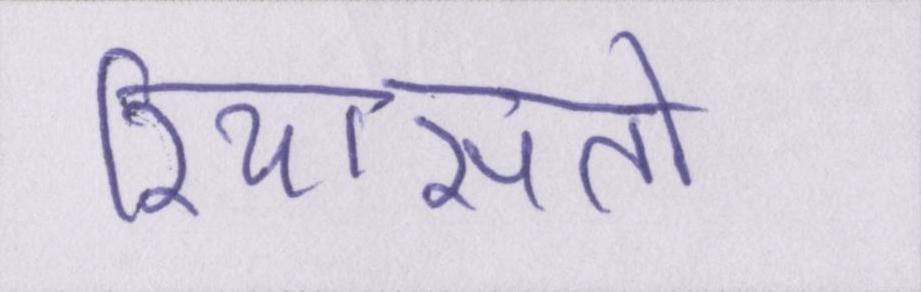 रियासतो